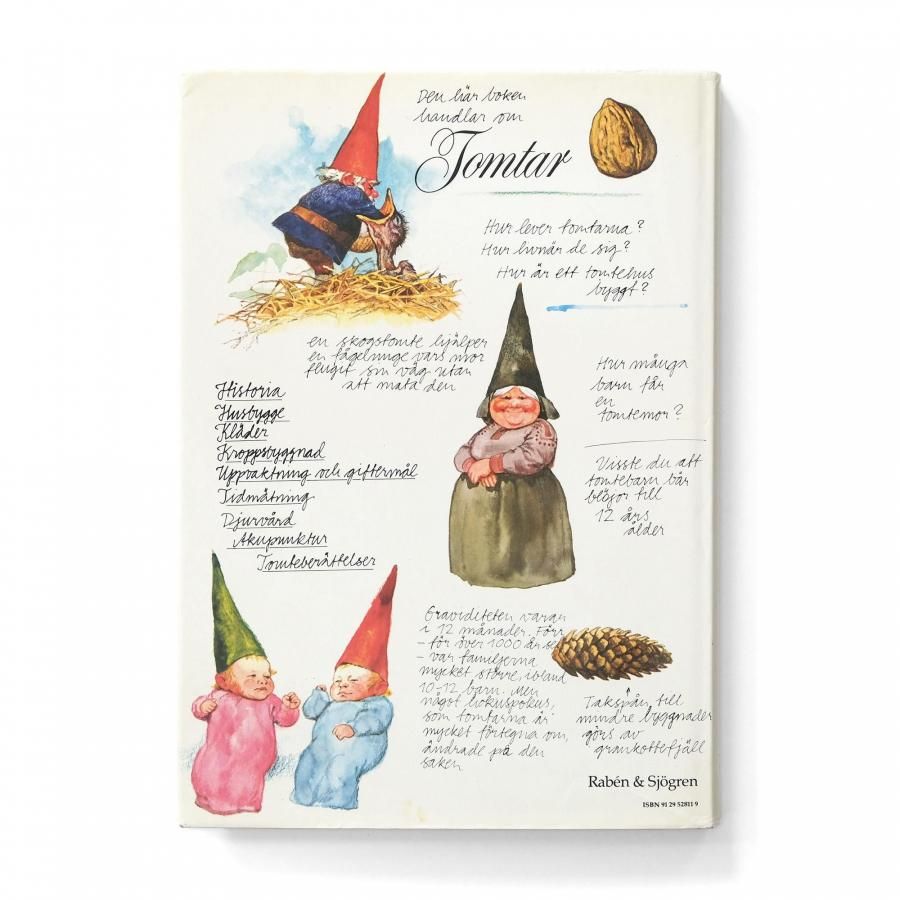 Den här boken
handlar om
Tomtar
Hur lever tomtarna?
Hur livnär de sig?
Hur är ett tomtehus
byggt?
en skogstomte hjälper
en fågelunge vars mor
flugit sin väg utan
att mata den
Hur många
barn får
en
tomtemor?
Historia
Husbygge
Kläder
Kroppsbyggnad
Uppvaktning och giftermål
Tidmätning
Djurvård
Akupunktur
Tomteberättelser
Visste du att
tomtebarn bär
blöjor till
12 års
ålder
Graviditeten varar
i 12 månader. Förr
- för över 1000 år se
- var familjerna
mycket större, ibland
10-12 barn. Men
något hokuspokus,
som tomtarna är
mycket förtegna om,
ändrade på den
saken.
Takspån till
mindre byggnader
görs av
grankottefjäll
Rabén & Sjögren
ISBN 91 29 52811 9